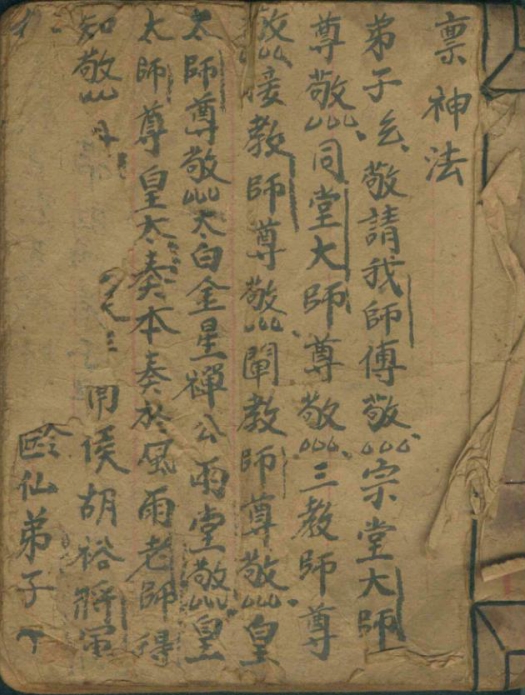 禀神法
弟子么敬請我師傅敬宗堂大師
尊敬同堂大師尊敬三教師尊
敬接教師尊敬闡教師尊敬皇
太師尊敬太白金星禪公雨堂敬皇
太師尊皇太奏本奏於風雨老師得
知敬
用侯胡裕將軍
仙弟子下